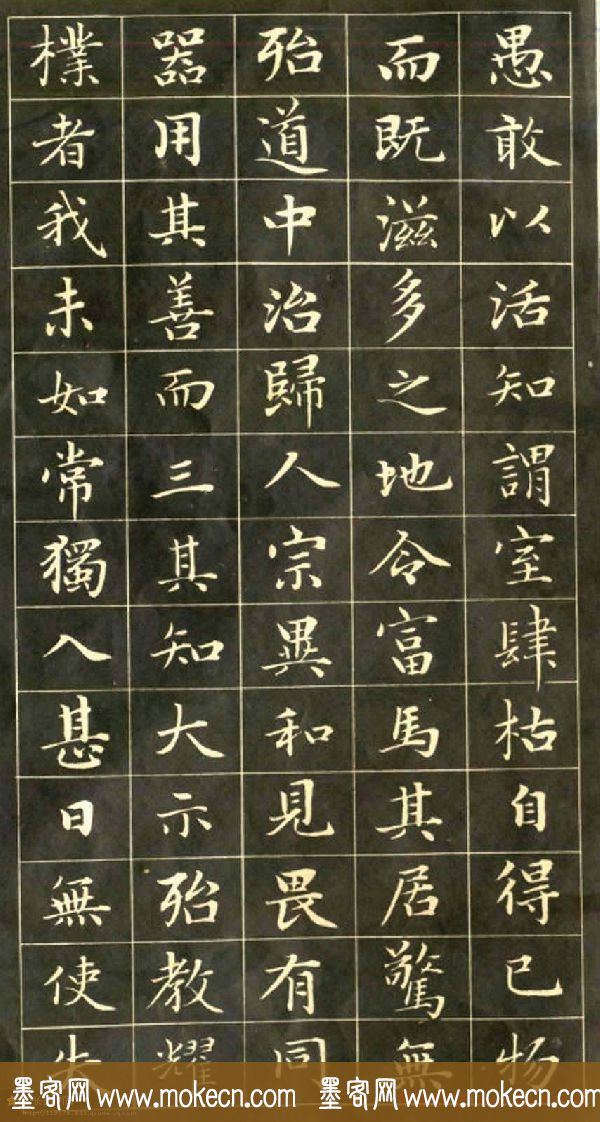 愚敢以活知謂室肆枯自得已物
而既滋多之地令富馬其居驚無
殆道中治歸人宗異和見畏有同
器用其善而三其知大示殆教耀
樸者我未如常獨入甚日無使失
墨客网www.mokecn.com 墨客网www.mokecn.com